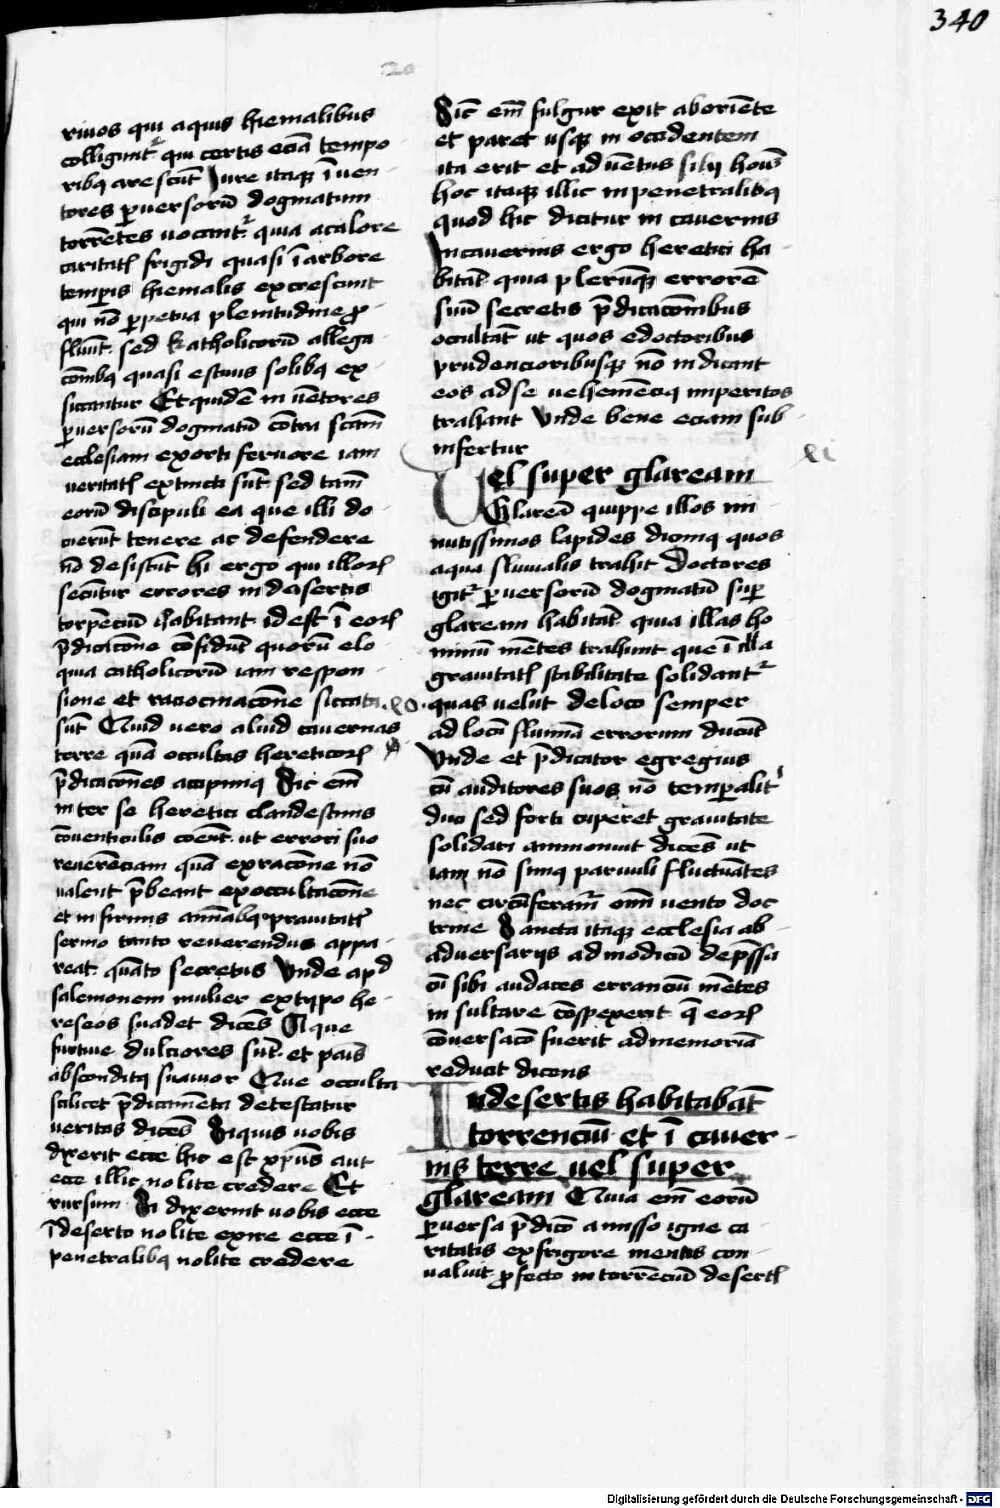 340
20
riuos qui aquis hiemalibus
colligunt᷑ qui certis eciā tempo
ribꝫ arescūt Iure itaqꝫ īuen
tores ꝑuersorū dogmatum
torrētes uocant᷑ quia a calore
caritatꝭ frigidi quasi ī arbore
temꝑis hiemalis excrescunt
qui nō ꝑpetua plenitudine ꝓ
fluūt. sed katholicorū allega
cōibꝫ quasi estiuis solibꝫ ex
siccantur Et quidē inuētores
ꝑuersorū dogmatū cōtra scām
ecclesiam exorti feruore iam
ueritatꝭ extincti sūt sed tamē
eorū discipuli ea que illi do
cuerūt tenere ac defendere
nō desistūt hi ergo qui illoꝝ
secūtur errores in desertis
torrēciū habitant idest ī eoꝝ
p̄dicacōne cōfidūt quorū elo
quia catholicorū iam respon
sione et raciocinacōne siccata
sūt Quid uero aliud cauernas
terre quā occultas hereticoꝝ
p̄dicacōnes accipimꝫ Sic em̄
inter se heretici clandestinis
cōuenticulis coeūt. ut errori suo
reuerēciam quā ex racōne nō
ualent p̄beant ex occultacōne
et infirmis aīabꝫ prauitatꝭ
sermo tanto reuerendus appa
reat. quāto secretus Vnde apd
salemonem mulier ex typo he
reseos suadet dicēs Aque
furtiue dulciores sūt. et pais
absconditꝫ suauior Que occulta
scilicet p̄dicamēta detestatur
ueritas dicēs Siquis uobis
dixerit ecce hic est xp̄us aut
ecce illic nolite credere Et
rursum Si dixerint uobis ecce
ī deserto nolite exire ecce ī
penetralibꝫ nolite credere
Sic em̄ fulgur exit ab oriēte
et paret usqꝫ in occidentem
ita erit et aduētus filij hoīs
hoc itaqꝫ illic in penetralibꝫ
quod hic dicitur in cauernis
In cauernis ergo heretici ha
bitāt quia plerūqꝫ errorē
suū secretis p̄dicacōnibus
occultāt ut quos edoctoribus
prudencioribusqꝫ nō indicant
eos ad se uehemēciꝫ imperitos
trahant Vnde bene eciam sub
infertur
Vel super glaream
xli
Glareā quippe illos mi
nutissimos lapides dicimꝫ quos
aqua fluuialis trahit Doctores
igit᷑ ꝑuersorū dogmatū suꝑ
glaream habitāt quia illas ho
minū mētes trahunt que ī illa
grauitatꝭ stabilitate solidant᷑
xl.
quas uelut de loco semper
ad locū flumīa errorum ducūt
Vnde et p̄dicator egregius
cū auditores suos nō temꝑalit᷑
duci sed forti cuperet grauitate
solidari ammonuit dicēs ut
iam nō simꝫ paruuli fluctuātes
nec circūferam᷑ omī uento doc
trine Sancta itaqꝫ ecclesia ab
aduersarijs admodicū dep̄ssa
cū sibi audaces errancū mētes
insultare cōspexerit q̄ eoꝝ
cōuersacō fuerit ad memoriā
reducit dicens
In desertis habitabāt
torrenciū et ī cauer
nis terre uel super
glaream Quia em̄ eorū
ꝑuersa p̄dicō amisso igne ca
ritatis ex frigore mentis con
ualuit ꝓfecto in torrēciū desertꝭ
Digitalisierung gefördert durch die Deutsche Forschungsgemeinschaft - DFG